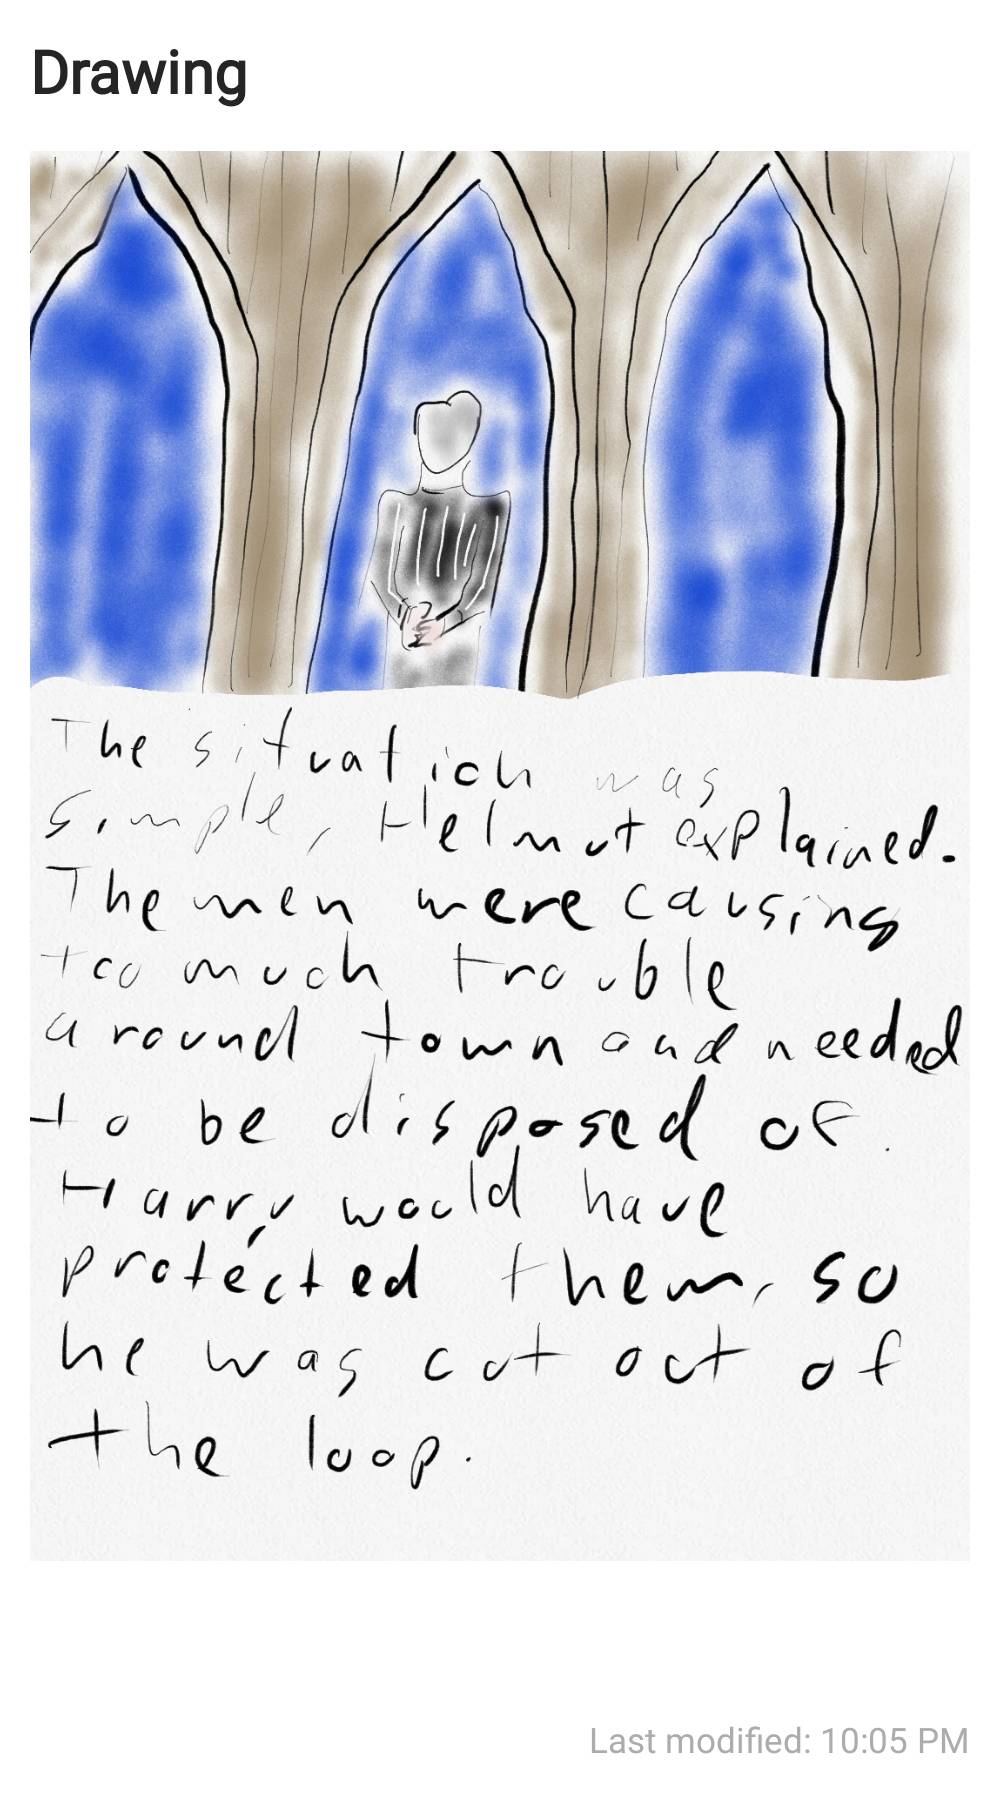 Drawing
The situation was
simple, Helmut explained.
The men were causing
too much trouble
around town and needed
to be disposed of.
Harry would have
protected them, so
he was cut out of
the loop.
Last modified: 10:05 PM